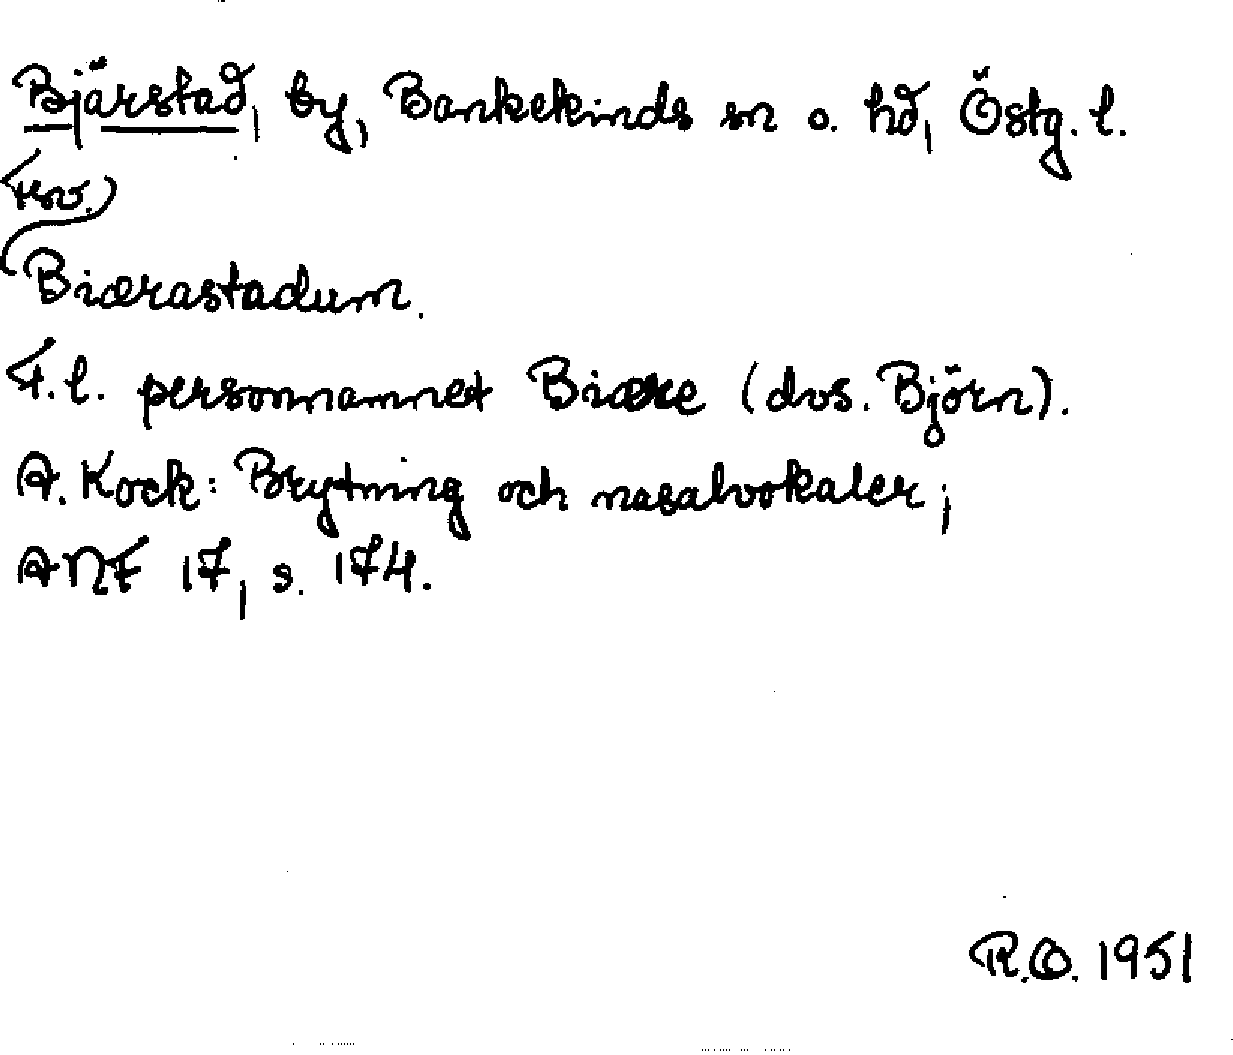 Bjärstad, by, Bankekinds sn o. hd, Östg. l.
Fsv.)
Biærastadum.
F.l. personnamnet Biære (dvs. Björn).
A. Kock: Brytning och nasalvokaler;
ANF 17, s. 174.
R.O. 1951